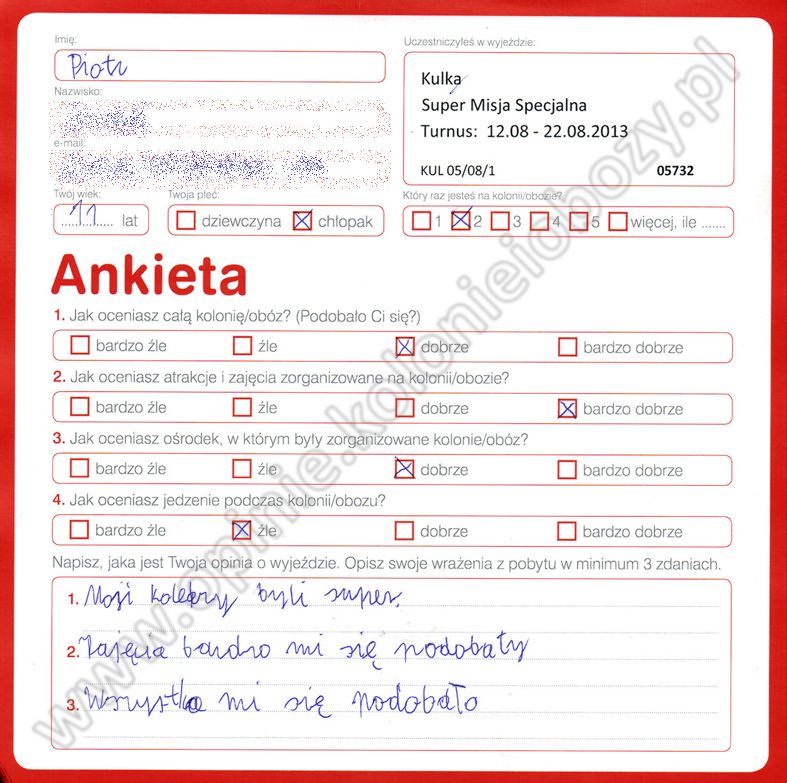 Imię:
Piotr
Nazwisko:
e-mail:
Twój wiek:
11 lat
Twoja płeć:
dziewczyna chłopak
Uczestniczyłeś w wyjeździe:
Kulka
Super Misja Specjalna
Turnus: 12.08 - 22.08.2013
KUL 05/08/1 05732
Który raz jesteś na kolonii/obozie?
1 2 3 4 5 więcej, ile .......
Ankieta
1. Jak oceniasz całą kolonię/obóz? (Podobało Ci się?)
bardzo źle źle dobrze bardzo dobrze
2. Jak oceniasz atrakcje i zajęcia zorganizowane na kolonii/obozie?
bardzo źle źle dobrze bardzo dobrze
3. Jak oceniasz ośrodek, w którym były zorganizowane kolonie/obóz?
bardzo źle źle dobrze bardzo dobrze
4. Jak oceniasz jedzenie podczas kolonii/obozu?
bardzo źle źle dobrze bardzo dobrze
Napisz, jaka jest Twoja opinia o wyjeździe. Opisz swoje wrażenia z pobytu w minimum 3 zdaniach.
1. Moji koledzy byli super.
2. Zajęcia bardzo mi się podobały
3. Wszystko mi się podobało
www.opinie.kolonieiobozy.pl